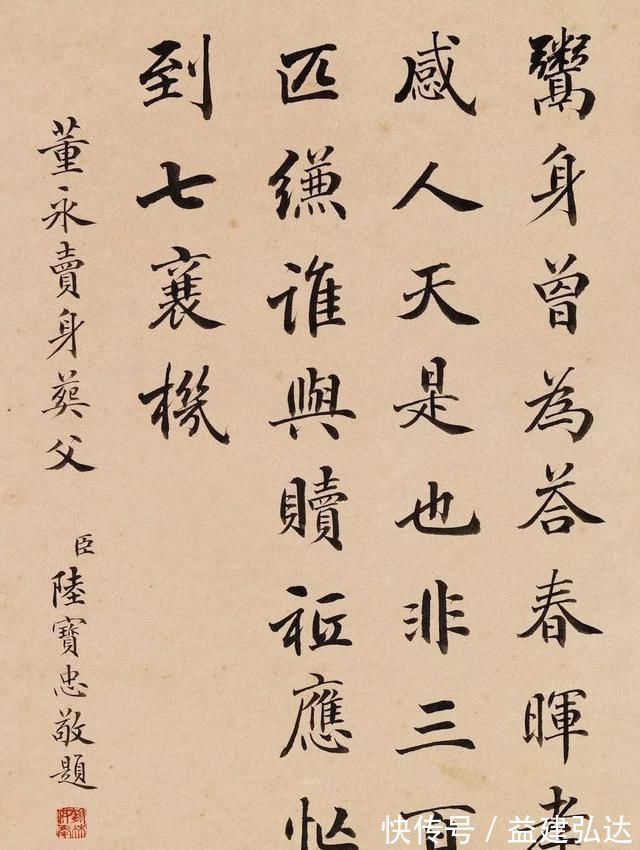 鬻身曾為荅春暉孝
感人天是也非三百
匹縑誰與贖祗應忙
到七襄機
董永賣身葬父
臣陸寶忠敬題
快传号 / 益建弘达